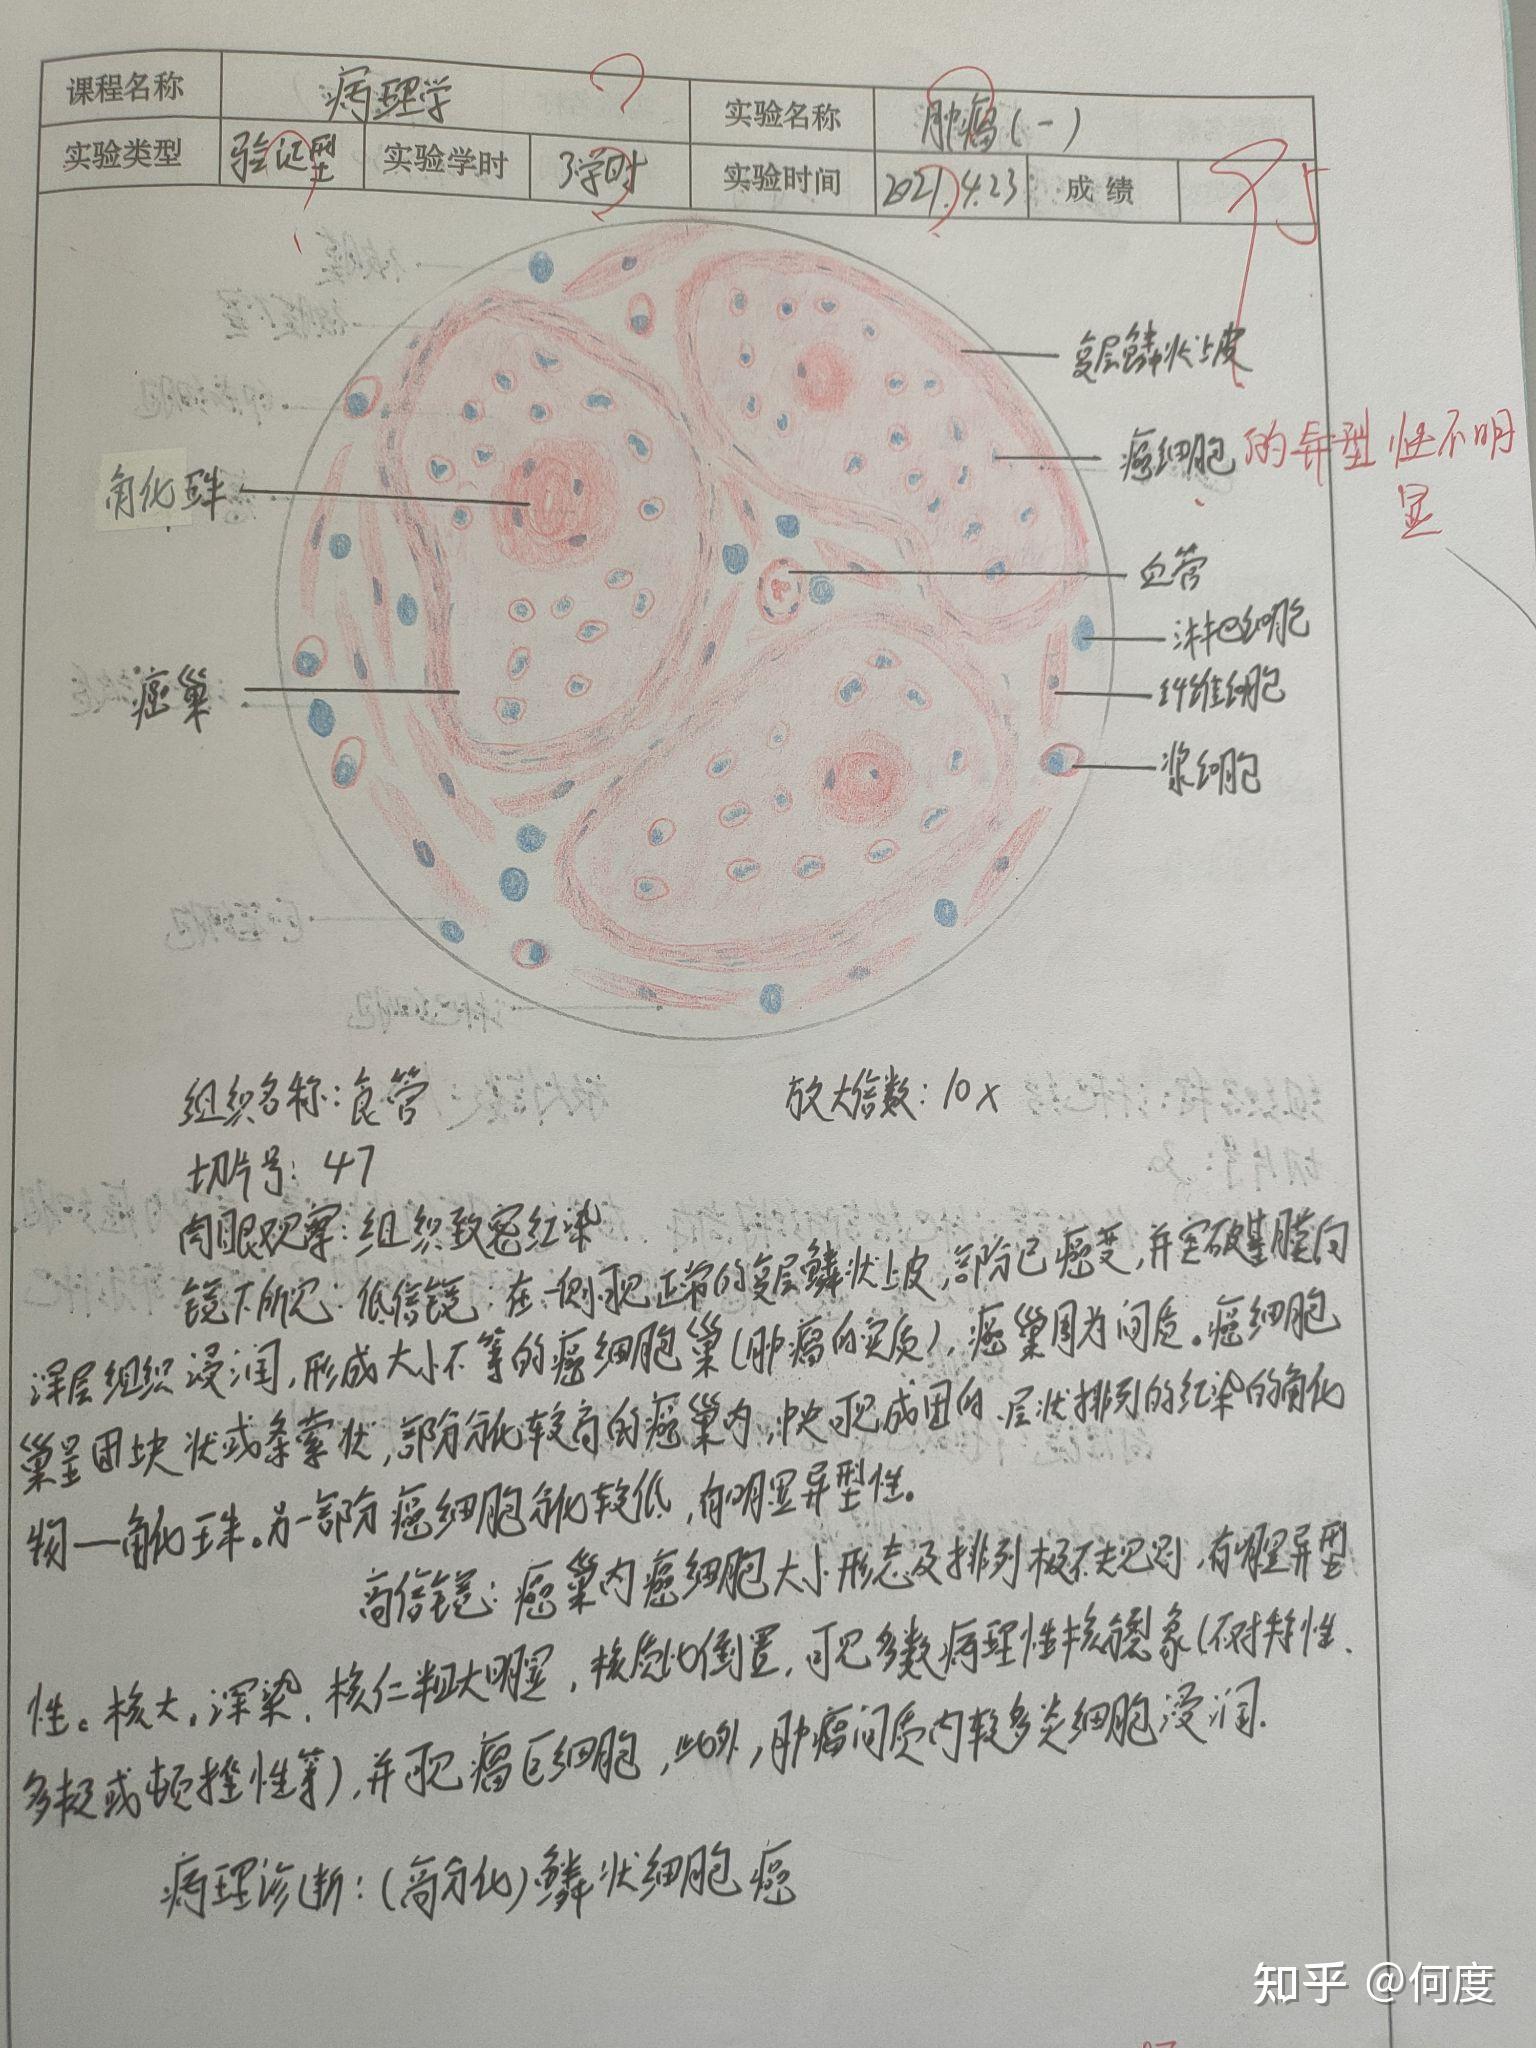 课程名称 病理学 实验名称 肿瘤(一)
实验类型 验证型 实验学时 3学时 实验时间 2021.4.23 成绩 95
复层鳞状上皮
癌细胞 的异型性不明
显
角化珠
血管
淋巴细胞
纤维细胞
癌巢
浆细胞
组织名称：食管 放大倍数：10×
切片号：47
肉眼观察：组织致密红染
镜下所见：低倍镜：在一侧可见正常的复层鳞状上皮，部分已癌变，并突破基膜向
深层组织浸润，形成大小不等的癌细胞巢(肿瘤的实质)，癌巢周为间质。癌细胞
巢呈团块状或条索状，部分分化较高的癌巢内，中央可见成团的、层状排列的红染的角化
物—角化珠。另一部分癌细胞分化较低，有明显异型性。
高倍镜：癌巢内癌细胞大小形态及排列极不规则，有明显异型
性。核大，深染，核仁粗大明显，核质比倒置，可见多数病理性核分裂象(不对称性、
多极或顿挫性等)，并可见瘤巨细胞，此外，肿瘤间质内较多炎细胞浸润.
病理诊断：(高分化)鳞状细胞癌
知乎 @何度